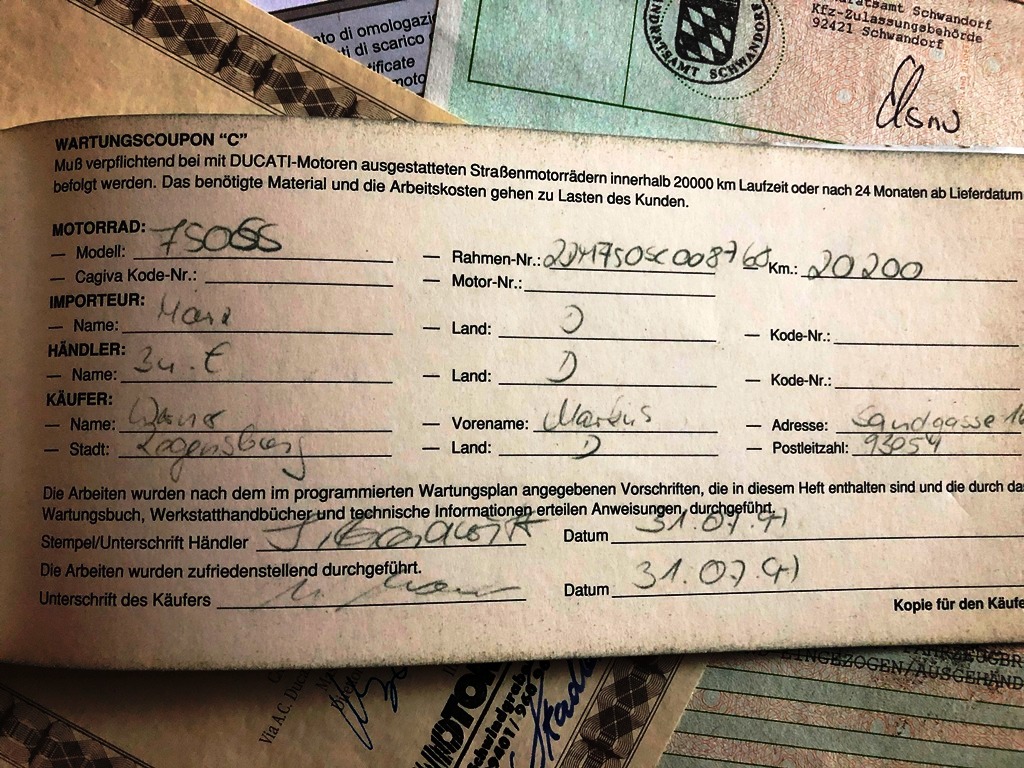 nto di omologazi
ti di scarico
tificate
moto
LANDRATSAMT SCHWANDORF
Schwandorf
Kfz-Zulassungsbehörde
92421 Schwandorf
WARTUNGSCOUPON “C”
Muß verpflichtend bei mit DUCATI-Motoren ausgestatteten Straßenmotorrädern innerhalb 20000 km Laufzeit oder nach 24 Monaten ab Lieferdatum
befolgt werden. Das benötigte Material und die Arbeitskosten gehen zu Lasten des Kunden.
MOTORRAD:
— Modell: 750SS — Rahmen-Nr.: Km.: 20200
— Cagiva Kode-Nr.: — Motor-Nr.:
IMPORTEUR:
— Name: — Land: D — Kode-Nr.:
HÄNDLER:
— Name: — Land: D — Kode-Nr.:
KÄUFER:
— Name: — Vorename: Markus — Adresse: Sandgasse 16
— Stadt: — Land: D — Postleitzahl: 93054
Die Arbeiten wurden nach dem im programmierten Wartungsplan angegebenen Vorschriften, die in diesem Heft enthalten sind und die durch da
Wartungsbuch, Werkstatthandbücher und technische Informationen erteilen Anweisungen, durchgeführt.
Stempel/Unterschrift Händler Datum 31.07.
Die Arbeiten wurden zufriedenstellend durchgeführt.
Unterschrift des Käufers Datum 31.07.
Kopie für den Käufe
Via A.C. Ducat
MOTO
EINGEZOGEN/AUSGEHÄND